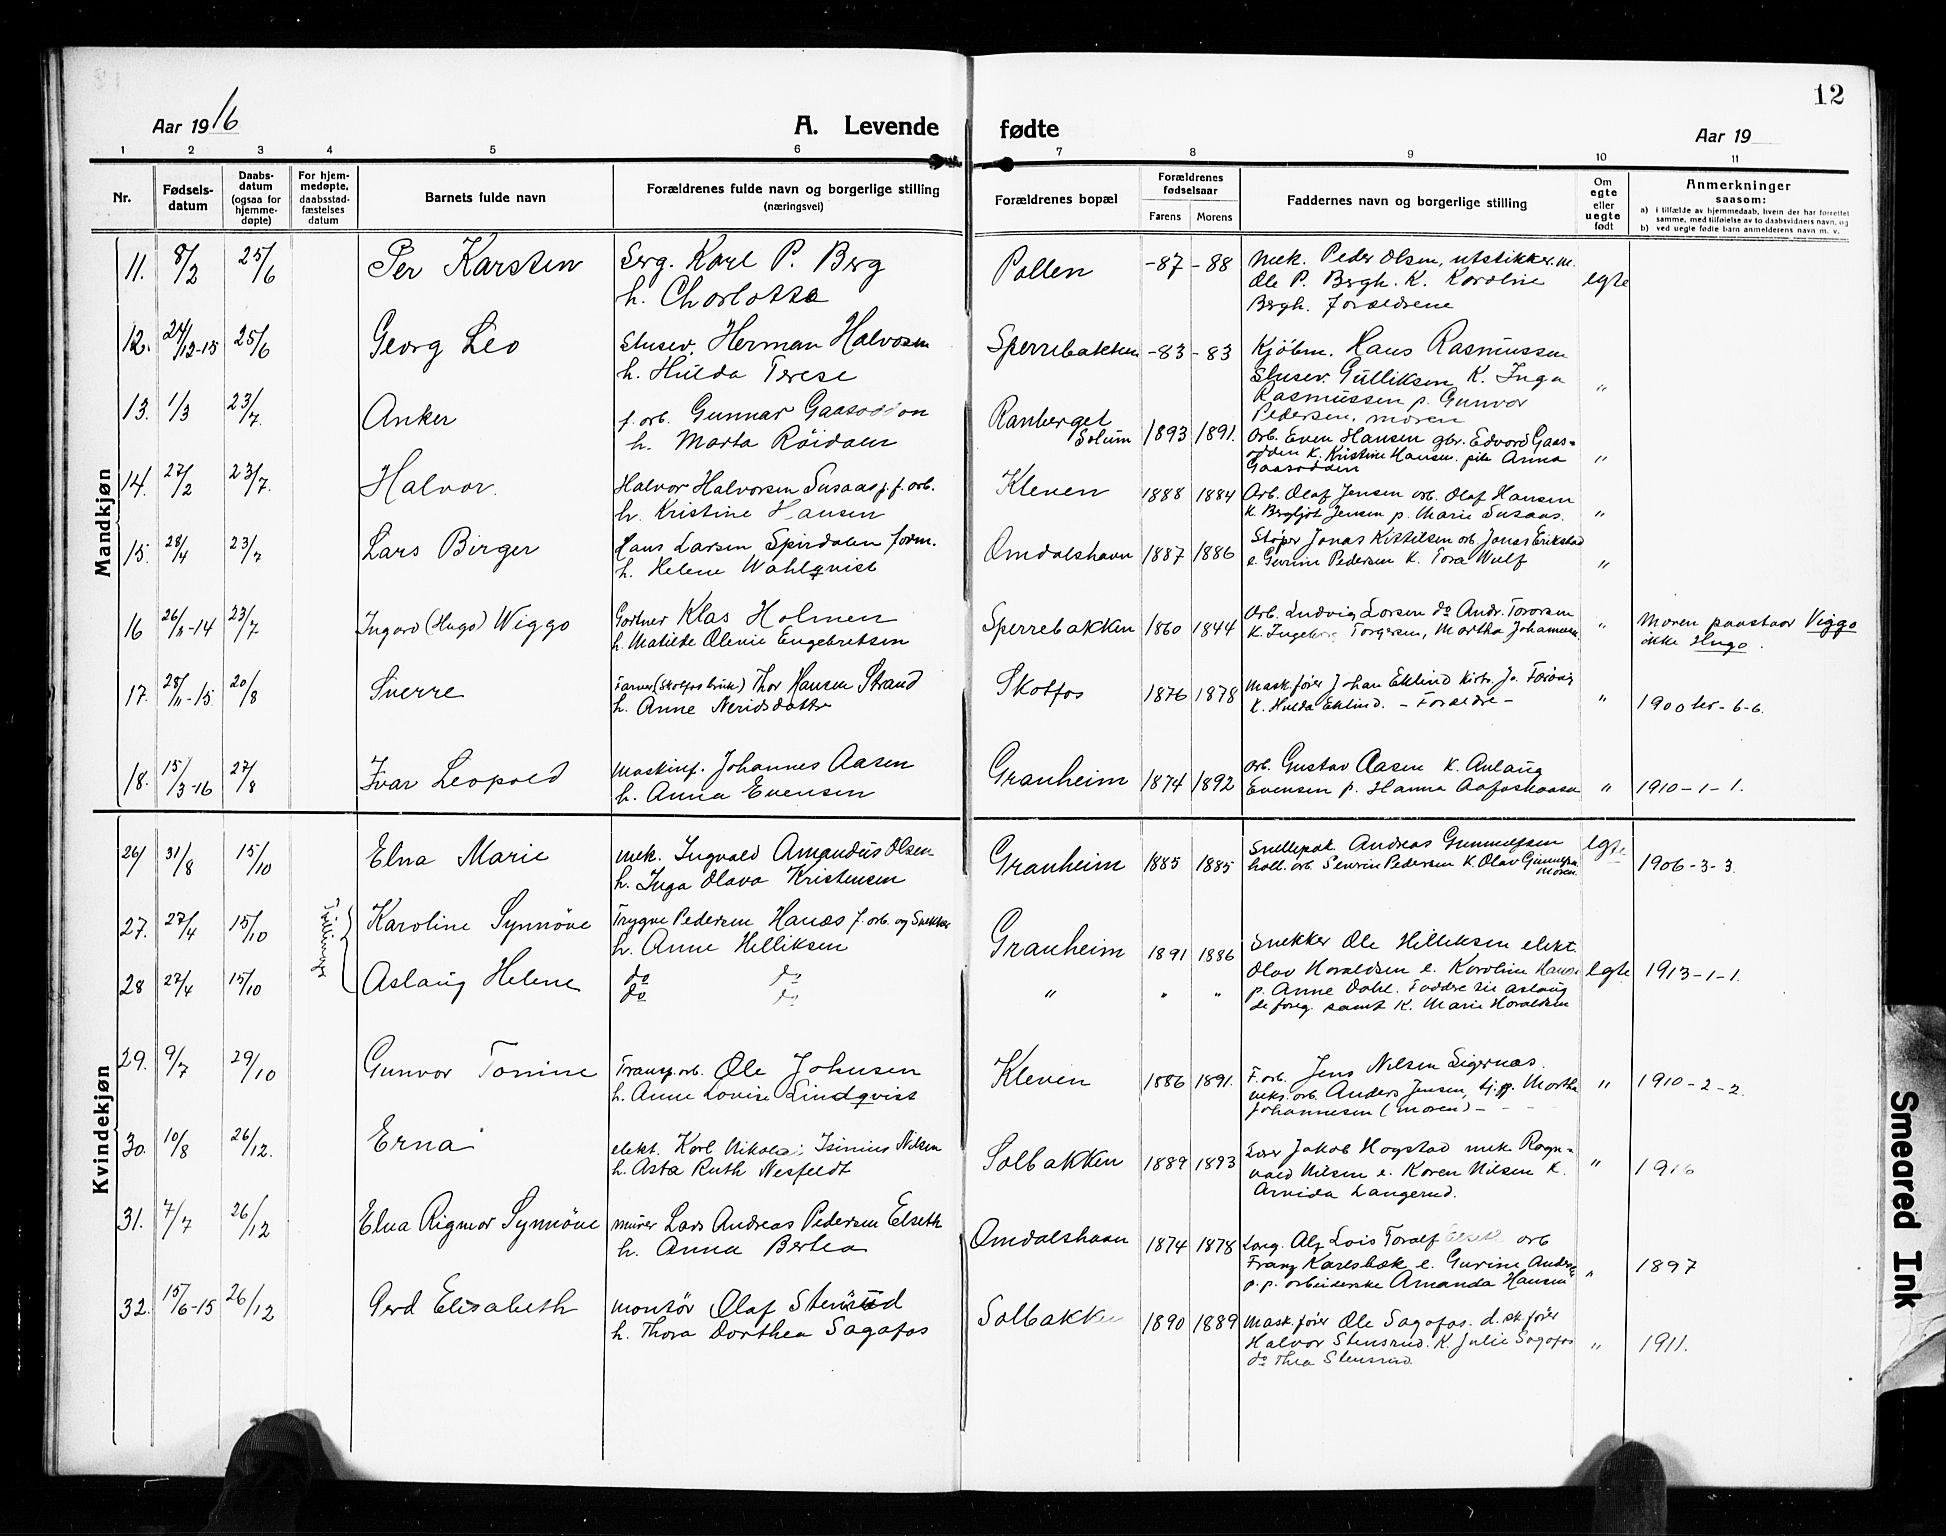 12
Aar 1916
A. Levende fødte
Aar 19
1 2 3 4 5 6 7 8 9 10 11
Nr.
Fødsels-
datum
Daabs-
datum
(ogsaa for
hjemme-
døpte)
For hjem-
medøpte,
daabsstad-
fæstelses
datum
Barnets fulde navn
Forældrenes fulde navn og borgerlige stilling
(næringsvei)
Forældrenes bopæl
Forældrenes
fødselsaar
Farens Morens
Faddernes navn og borgerlige stilling
Om
egte
eller
uegte
født
Anmerkninger
saasom:
a) i tilfælde av hjemmedaab, hvem der har forrettet
samme, med tilføielse av to daabsvidners navn, og
b) ved uegte fødte barn anmelderens navn m. v.
Mandkjøn
11. 8/2 25/6 Per Karsten Serg. Karl P. Berg Pollen -87 -88 Mek. Peder Olsen, utstikker m.
h. Charlotte Ole P. Bergh. K. Karoline egte
Bergh. forældrene
12. 24/12-15 25/6 Georg Leo Sluser. Herman Halvorsen Sperrebakken -83 -83 Kjøbm. Hans Rasmussen
h. Hulda Terese Sluser. Gulliksen K. Inga "
Rasmussen p. Gunvor
Pedersen, moren
13. 1/3 23/7. Anker f. arb. Gunnar Gaasodden Ranberget
Solum 1893 1891. Arb. Even Hansen gbr. Edvard Gaas-
h. Marta Röidalen odden K. Kristine Hansen. pike Anna "
Gaasodden
14. 27/2 23/7. Halvor. Halvor Halvorsen Susaas f. arb. Kleven 1888 1884 Arb. Olaf Jensen arb. Olaf Hansen
h. Kristine Hansen K. Bergljot Jensen p. Marie Susaas. "
15. 28/4 23/7 Lars Birger Hans Larsen Spirdalen form. Omdalshavn 1887 1886 Støper Jonas Kittilsen arb. Jonas Erikstad
h. Helene Wahlqvist e. Gurine Pedersen K. Tora Wulf "
16 23/7 Ingard (Hugo) Wiggo Gartner Klas Holmen Sperrebakken 1860 Arb. Ludvig Larsen do Andr. Tororsen " Moren paastaar Viggo
h. Matilde Olenie Engebretsen K. Ingeborg Torgersen, Martha Johannesen ikke Hugo.
17. 28/11-15 20/8 Sverre Farver (Skotfos bruk) Thor Hansen Strand Skotfos 1876 1878 Mask.fører Johan Eklind
h. Anne Neridsdatter K. Hulda Eklind. - Forældre - " 1900 -6-6.
18. 15/3-16 27/8 Ivar Leopold Maskinf. Johannes Aasen Granheim 1874 1892 arb. Gustav Aasen K. Aulaug
h. Anna Evensen Evensen p. Hanna " 1910-1-1.
Kvindekjøn
26/ 31/8 15/10 Elna Marie Mek. Ingvald Amandus Olsen Granheim 1885 1885 Andreas Gunnulfsen egte
h. Inga Olava Kristensen holl. arb. Sevrin Pedersen K. Olav 1906-3-3.
moren
Tvillinger
27. 27/4 15/10 Karoline Synnöve Trygve Pedersen Hanäs f. arb. og Snekker Granheim 1891 1886 Snekker Ole Hilliksen elekt.
h. Anne Helliksen Olav Haraldsen e. Karoline egte 1913-1-1.
28 27/4 15/10 Aslaug Helene do do " " " p. Anne Dahl. Faddre til Aslaug
do do de foreg. samt K. Marie Haraldsen
29. 9/7 29/10 Gunvor Tomine Transp.arb. Ole Johnsen Kleven 1886 1891. F. arb. Jens Nilsen Sigernæs.
h. Anne Lovise Lindqvist veks. arb. Anders Jensen, tj.p. Martha " 1910-2-2.
Johannesen (moren) -
30. 10/8 26/12. Erna elekt. Karl Nikolai Isinius Nilsen Solbakken 1889 1893 Jakob Hogstad mek. Ragn-
h. Asta Ruth Nesfeldt vald Nilsen e. Karen Nilsen K. " 1916
Arvida Langerud.
31. 7/7 26/12 Elna Rigmor Synnöve Murer Lars Andreas Pedersen Elseth Omdalshavn 1874 1878 Toralf arb
h. Anna Bertea Franz Karlsbak e. Gurine " 1897
p.p. arbeiderske Amanda Hansen
32. 15/6-15 26/12 Gerd Elisabeth Montör Olaf Stensrud Solbakken 1890 1889 Mask.fører Ole Sagafos. d. sk.fører
h. Thora Dorthea Sagafos Halvor Stensrud. K. Julie Sagafos " 1911.
do Thea Stensrud.
Smeared Ink